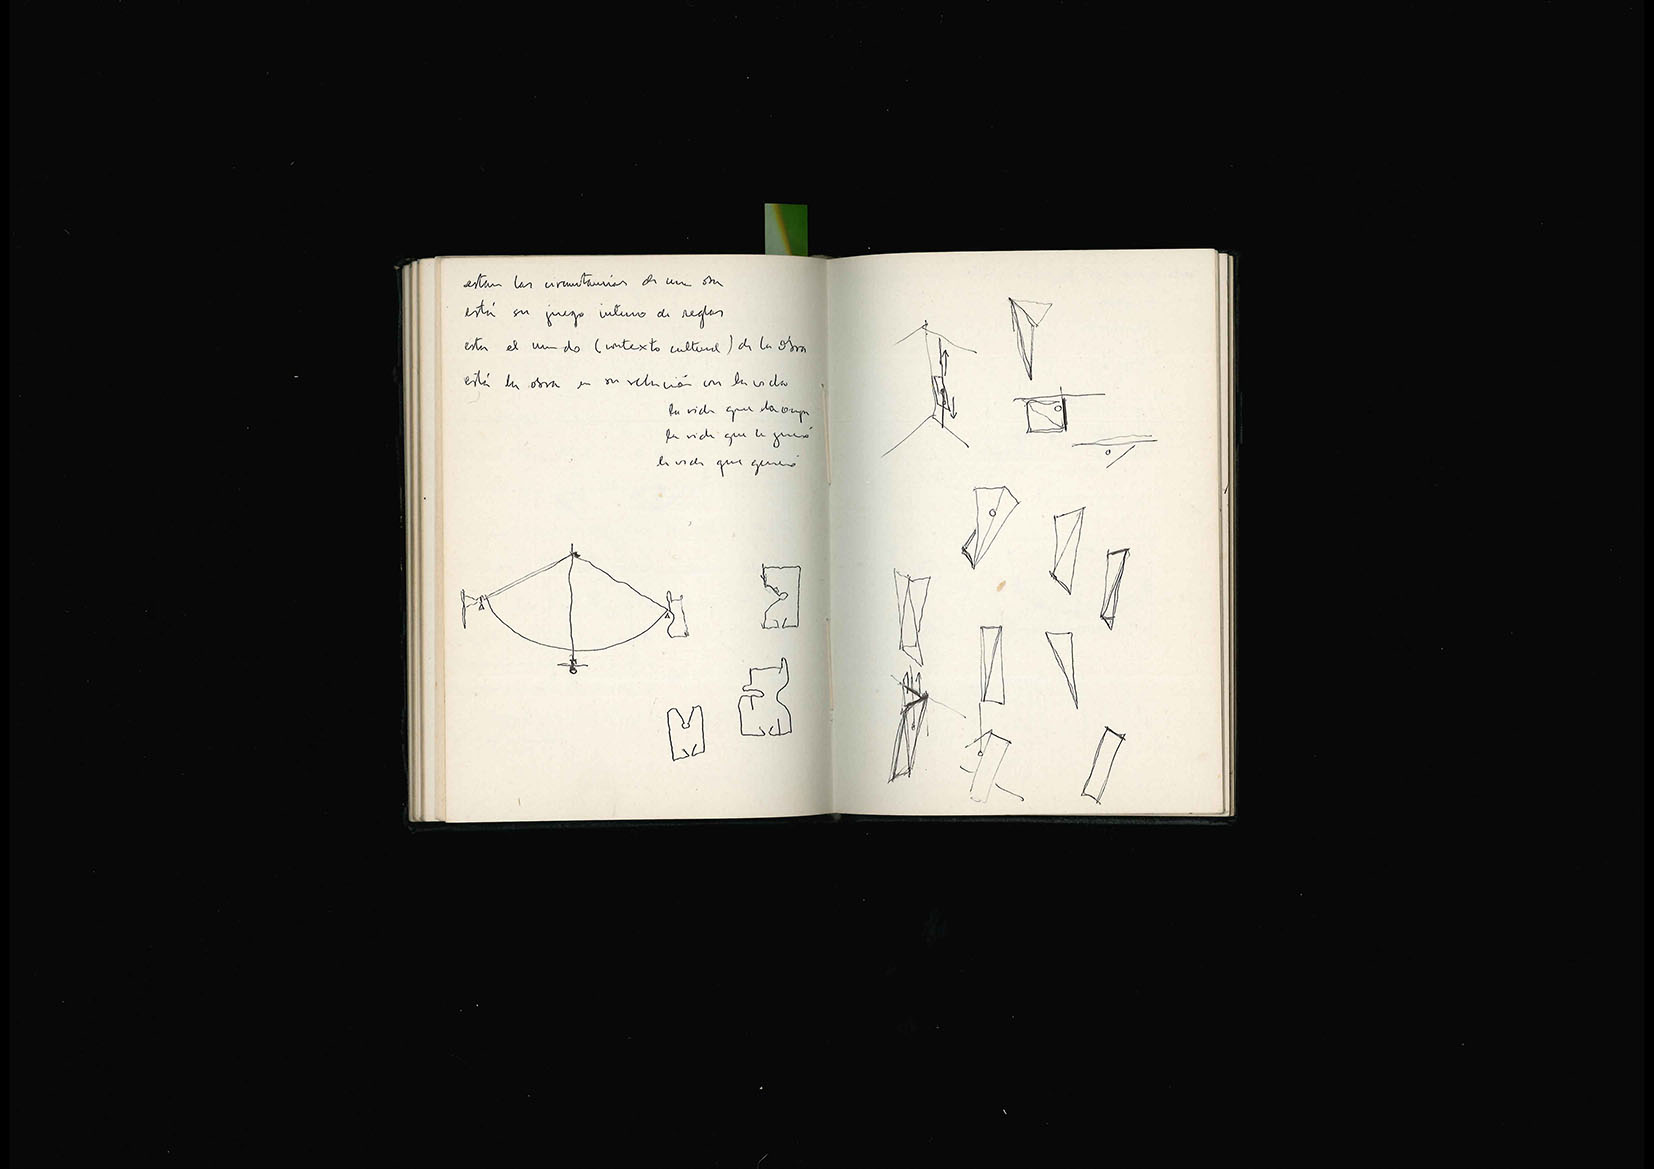 estan las circunstancias de una obra
está su juego interno de reglas
esta el mundo (contexto cultural) de la obra
está la obra en su relación con la vida
la vida que la ocupa
la vida que la generó
la vida que generó